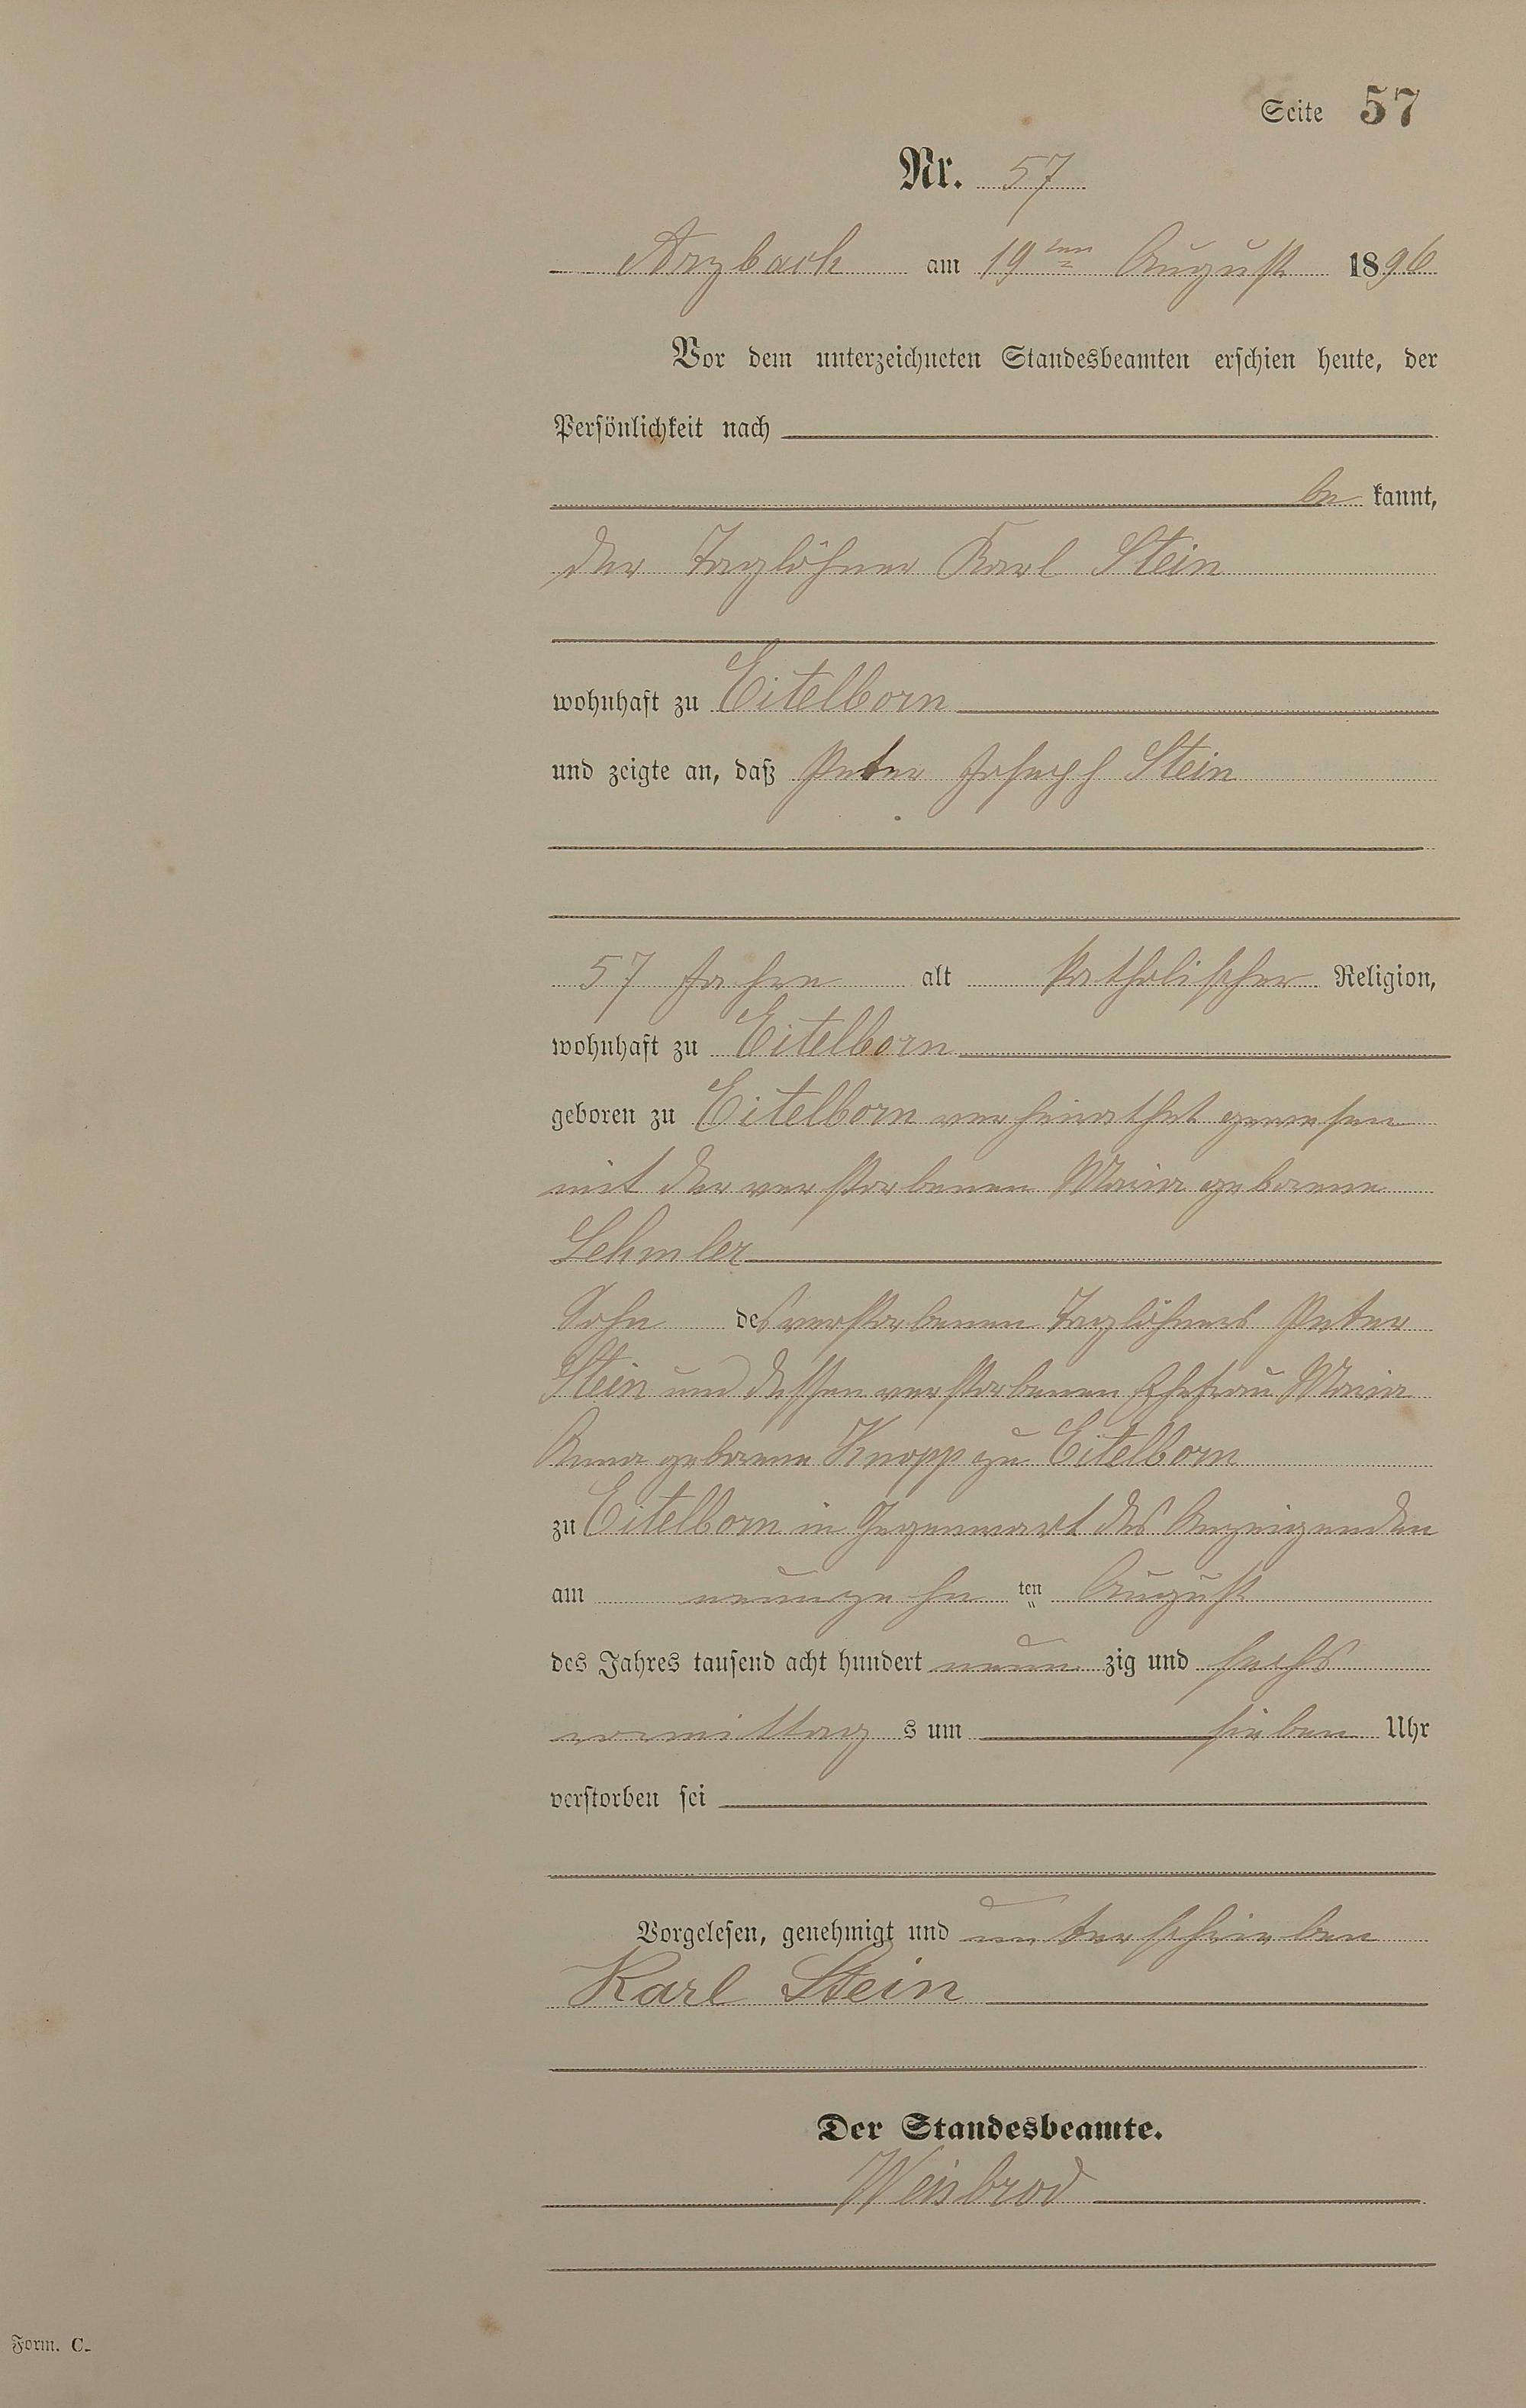 Seite 57
Nr. 57
Arzbach am 19ten August 1896
Vor dem unterzeichneten Standesbeamten erschien heute, der
Persönlichkeit nach
be kannt,
der Taglöhner Karl Stein
wohnhaft zu Eitelborn
und zeigte an, daß Peter Joseph Stein
57 Jahre alt katholischer Religion,
wohnhaft zu Eitelborn
geboren zu Eitelborn verheirathet gewesen
mit der verstorbenen Maria geborene
Lehmler
Sohn des verstorbenen Taglöhners Peter
Stein und dessen verstorbenen Ehefrau Maria
Anna geborene Knopp zu Eitelborn
zu Eitelborn in Gegenwart des Anzeigenden
am neunzehn ten August
des Jahres tausend acht hundert neun zig und sechs
vormittag s um sieben Uhr
verstorben sei
Vorgelesen, genehmigt und unterschrieben
Karl Stein
Der Standesbeamte.
Weisbrod
Form. C.